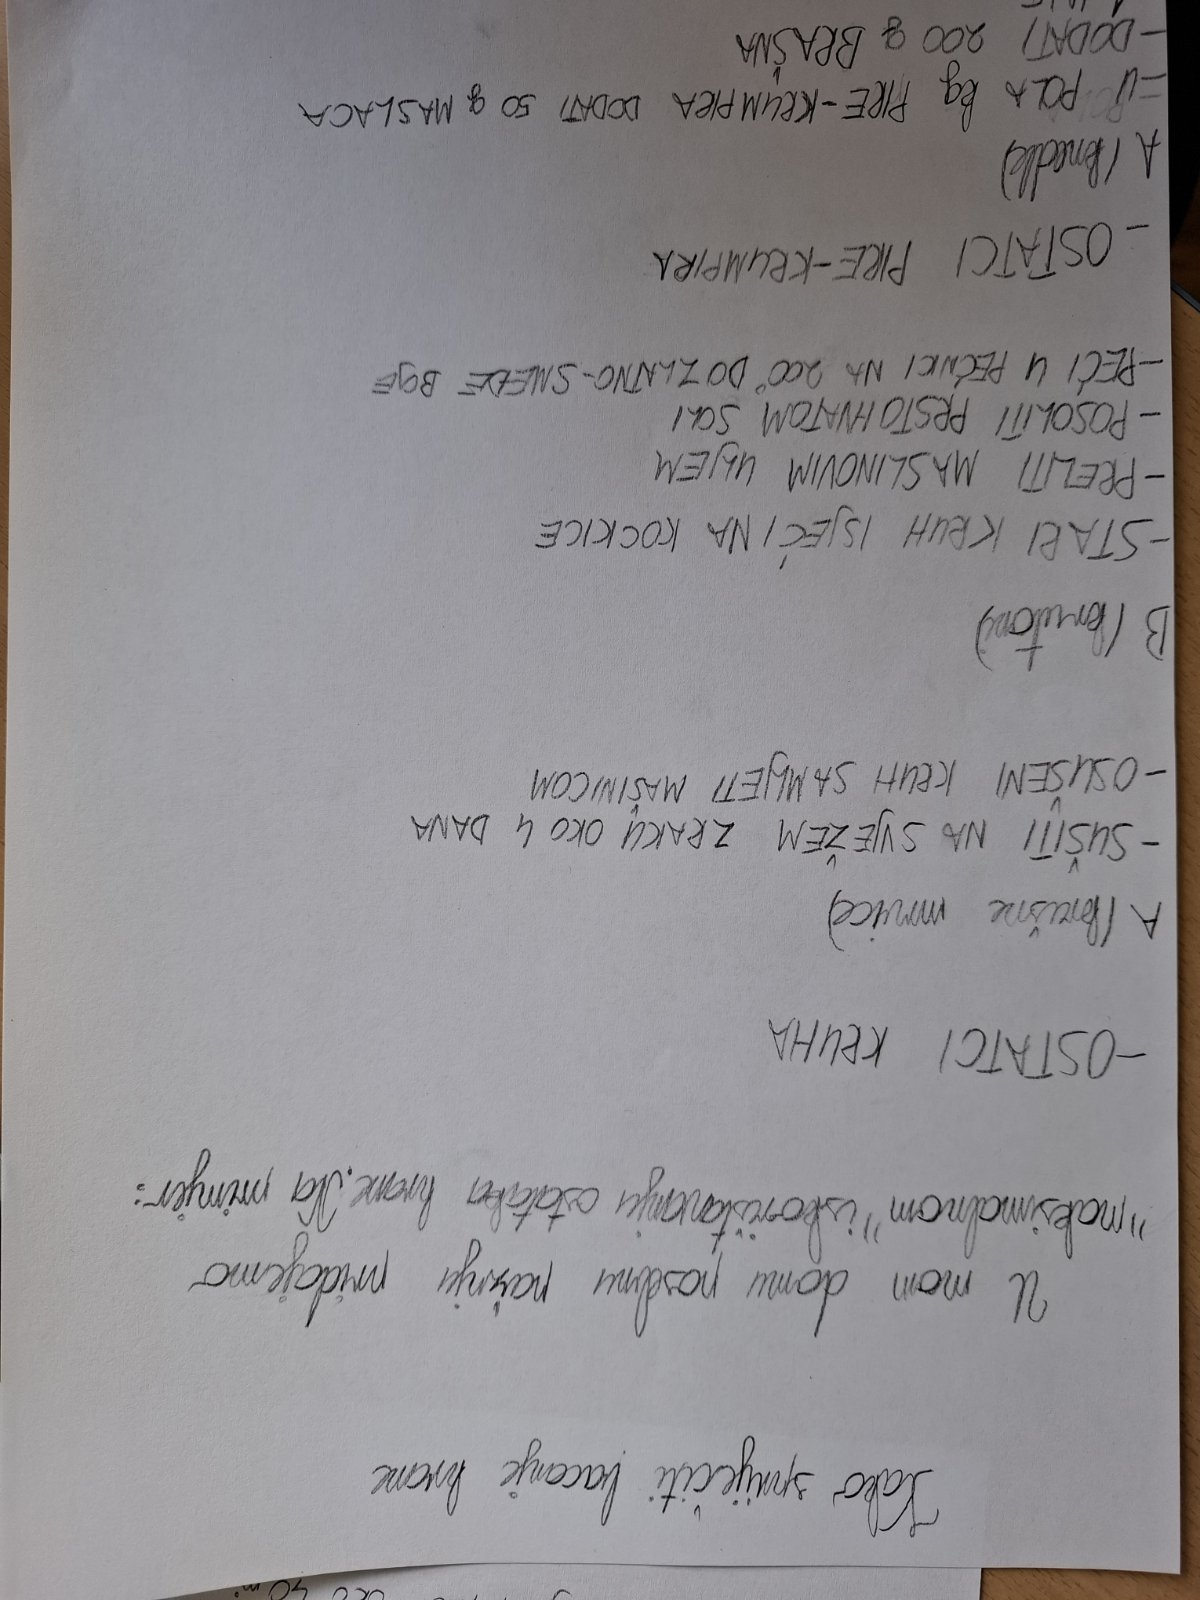 Kako spriječiti bacanje hrane
U mom domu posebnu pažnju pridajemo
"maksimalnom" iskorištavanju ostataka hrane. Na primjer:
- OSTATCI KRUHA
A (krušne mrvice)
- SUŠITI NA SVJEŽEM ZRAKU OKO 4 DANA
- OSUŠENI KRUH SAMLJETI MAŠINICOM
B (krutoni)
- STARI KRUH ISJEĆI NA KOCKICE
- PRELITI MASLINOVIM ULJEM
- POSOLITI PRSTOHVATOM SOLI
- PEĆI U PEĆNICI NA 200° DO ZLATNO-SMEĐE BOJE
- OSTATCI PIRE-KRUMPIRA
A (knedle)
- U POLA kg PIRE-KRUMPIRA DODATI 50 g MASLACA
- DODATI 200 g BRAŠNA